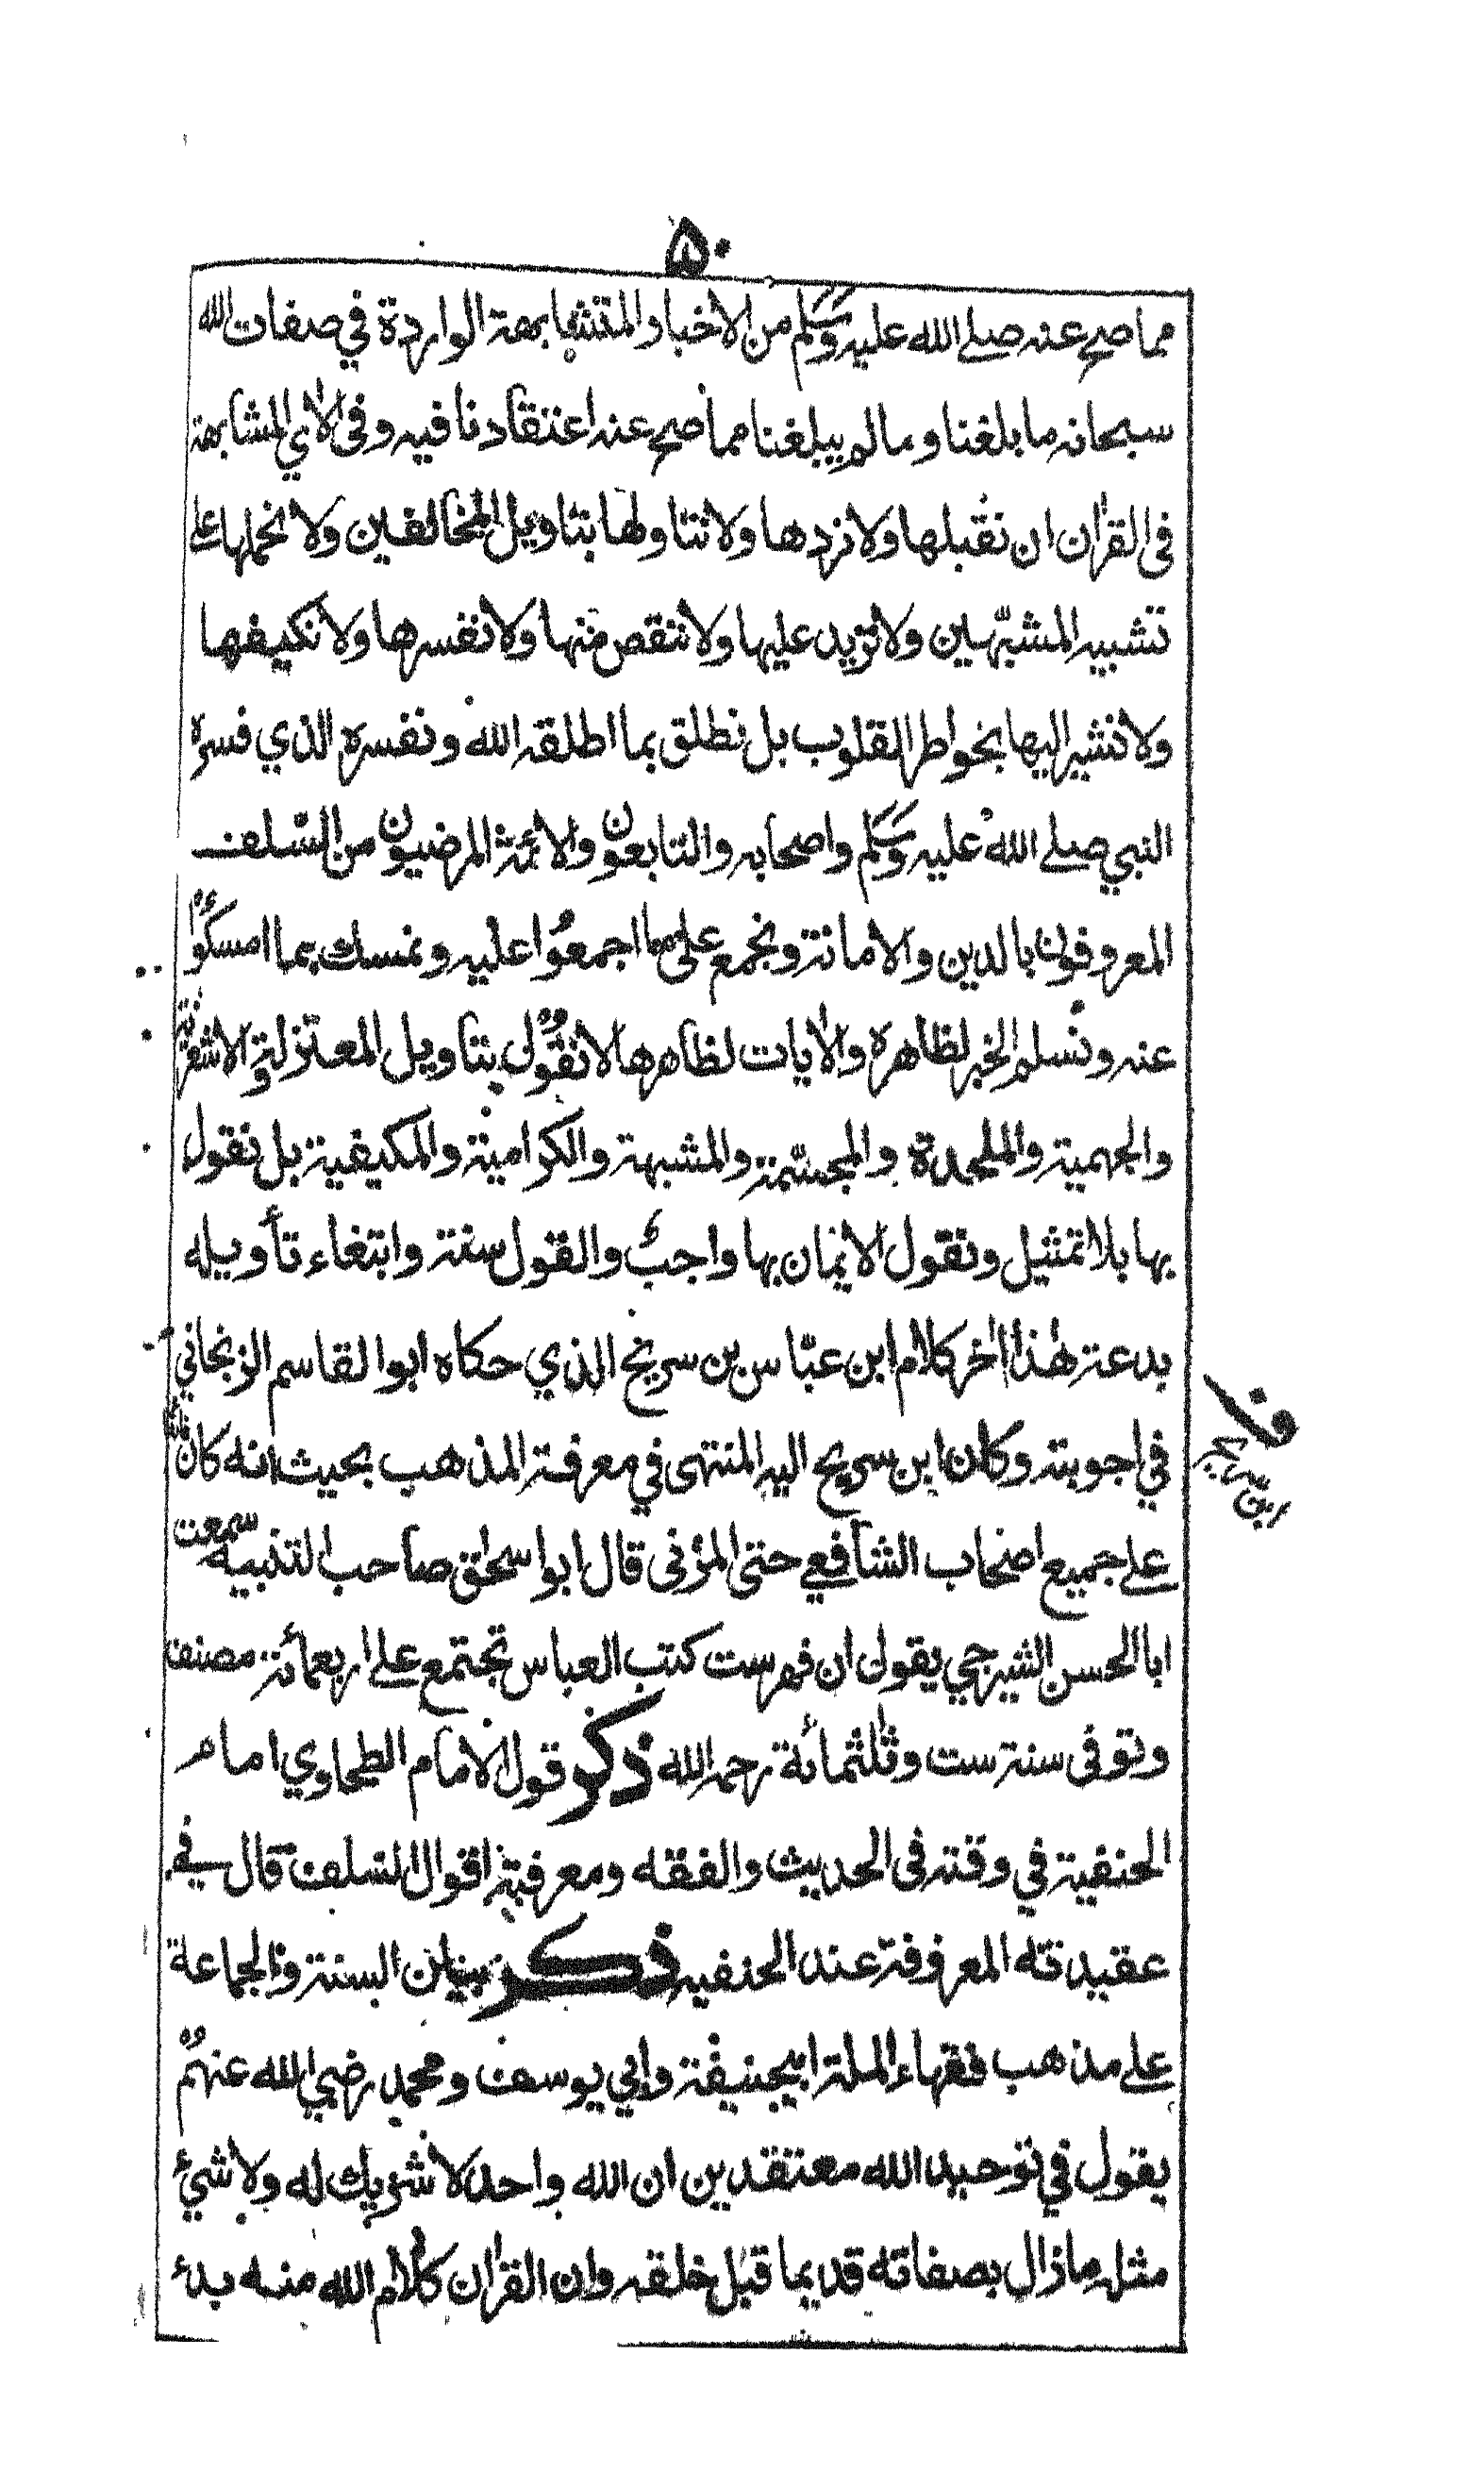 ۵۰
مما صح عنه صلے الله عليه وسلم من الاخبار المتشابهة الواردة في صفات الله
سبحانه ما بلغنا وما لم يبلغنا مما صح عنه اعتقادنا فيه وفى الاٰي المشابهة
فى القراٰن ان نقبلها ولا نردها ولا نتاولها بتاويل المخالفين ولا نحملها على
تشبيه المشبّهين ولا نزيد عليها ولا ننقص منها ولا نفسرها ولا نكيفها
ولا نشير اليها بخواطر القلوب بل نطلق بما اطلقه الله ونفسره الذي فسره
النبي صلے الله عليه وسلم واصحابه والتابعون والائمة المرضيون من السّلف
المعروفون بالدين والامانة ونجمع على ما اجمعُوا عليه ونمسك بما امسكُوا
عنه ونسلم الخبر لظاهره والاٰيات لظاهرها لا نقُول بتاويل المعتزلة والاشعرية
والجهمية والملحدة والمجسّمة والمشبهة والكرامية والمكيفية بل نقول
بها بلا تمثيل ونقول الايمان بها واجبٌ والقول سنة وابتغاء تأويله
بدعة هٰذا اٰخر كلام ابن عبّاس بن سريج الذي حكاه ابوا لقاسم الزنجاني
في اجوبته وكان ابن سريج اليه المنتهى في معرفة المذهب بحيث انه كان فائقا
علے جميع اصحاب الشافعي حتى المزنى قال ابوا سحٰق صاحب التنبيه سمعت
ابا الحسن الشيرجي يقول ان فهرست كتب العباس تجتمع علے اربعمائة مصنف
وتوفى سنة ست وثلٰثمائة رحمه الله ذكر قول الامام الطحاوي امام
الحنفية في وقته فى الحديث والفقه ومعرفة اقوال السّلف قال في
عقيدته المعروفة عند الحنفيه ذكر بيان السنة والجماعة
علے مذهب فقهاء الملة ابيحنيفة وابي يوسف ومحمد رضي الله عنهمُ
يقول في توحيد الله معتقدين ان الله واحد لا شريك له ولا شيء
مثله ما زال بصفاته قديما قبل خلقه وان القراٰن كلام الله منه بدء
ابن سريج